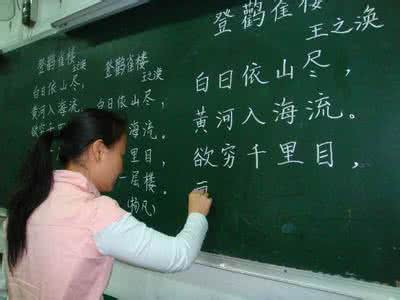 登鹳雀楼
王之涣
白日依山尽，
黄河入海流。
欲穷
登鹳雀楼
王之涣
白日依山尽，
海流。
里目，
一层楼。
登鹳雀楼
王之涣
白日依山尽，
黄河入海流。
欲穷千里目，